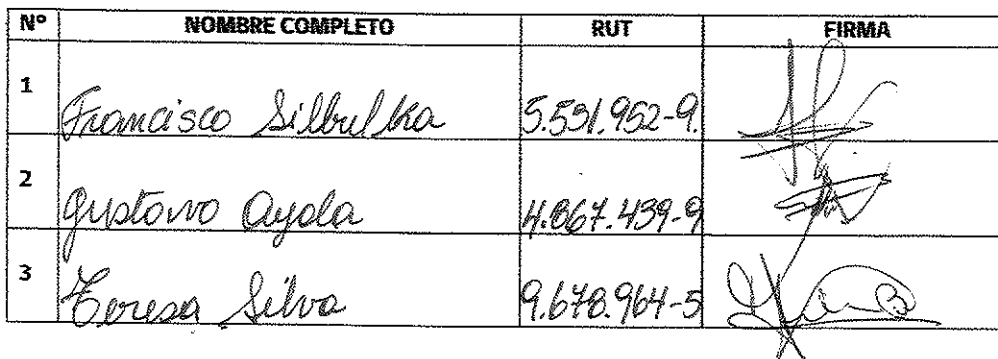 N° NOMBRE COMPLETO RUT FIRMA
1 Francisco Silbulka 5.531.952-9.
2 Gustavo Ayala 4.867.439-9
3 Teresa Silva 9.678.964-5